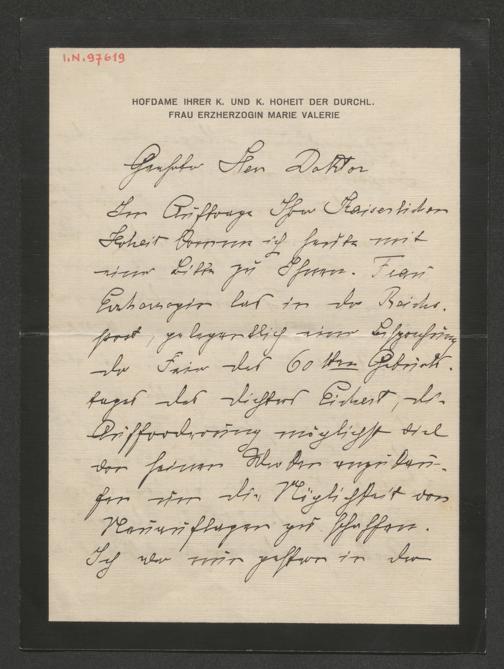 I.N. 97619
HOFDAME IHRER K. UND K. HOHEIT DER DURCHL.
FRAU ERZHERZOGIN MARIE VALERIE
Geehrter Herr Doktor
Im Auftrage Ihrer Kaiserlichen
Hoheit komme ich heute mit
einer Bitte zu Ihnen. Frau
Erzherzogin las in der Reichs-
post, gelegentlich einer Besprechung
der Feier des 60ten Geburts-
tages des Dichters Eichert, die
Aufforderung möglichst viel
von seinen Werken anzukau-
fen um die Möglichkeit von
Neuauflagen zu schaffen.
Ich war nun gestern in der